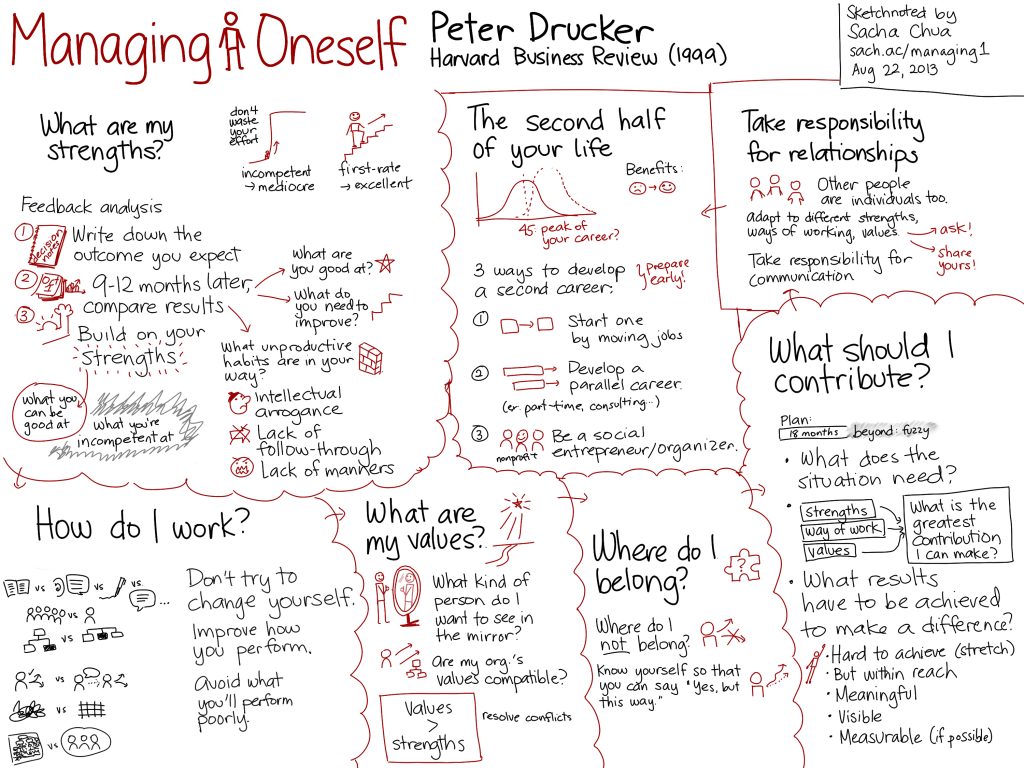 Managing Oneself
Peter Drucker
Harvard Business Review (1999)
Sketchnoted by
Sacha Chua
sach.ac/managing1
Aug 22, 2013
What are my
strengths?
don't
waste
your
effort
incompetent
→ mediocre
first-rate
→ excellent
Feedback analysis
1
Decision
notes
Write down the
outcome you expect
2
9-12 months later,
compare results
3
Build on your
strengths
What are
you good at?
What do
you need to
improve?
What unproductive
habits are in your
way?
Intellectual
arrogance
Lack of
follow-through
Lack of manners
what you
can be
good at
what you're
incompetent at
The second half
of your life
Benefits:
45: peak of
your career?
3 ways to develop
a second career:
prepare
early!
1
Start one
by moving jobs
2
Develop a
parallel career.
(ex. part-time, consulting...)
3
nonprofit
Be a social
entrepreneur/organizer.
Take responsibility
for relationships
Other people
are individuals too.
adapt to different strengths,
ways of working, values.
→ ask!
share
yours!
Take responsibility for
communication.
What should I
contribute?
Plan:
18 months
beyond: fuzzy
• What does the
situation need?
• strengths
way of work
values
What is the
greatest
contribution
I can make?
• What results
have to be achieved
to make a difference?
• Hard to achieve (stretch)
• But within reach
• Meaningful
• Visible
• Measurable (if possible)
How do I work?
vs vs vs.
...
vs
vs
vs
vs
vs
Don't try to
change yourself.
Improve how
you perform.
Avoid what
you'll perform
poorly.
What are
my values?
What kind of
person do I
want to see in
the mirror?
Are my org.'s
values compatible?
Values
>
strengths
resolve conflicts
Where do I
belong?
?
Where do I
not belong?
Know yourself so that
you can say "Yes, but
this way."